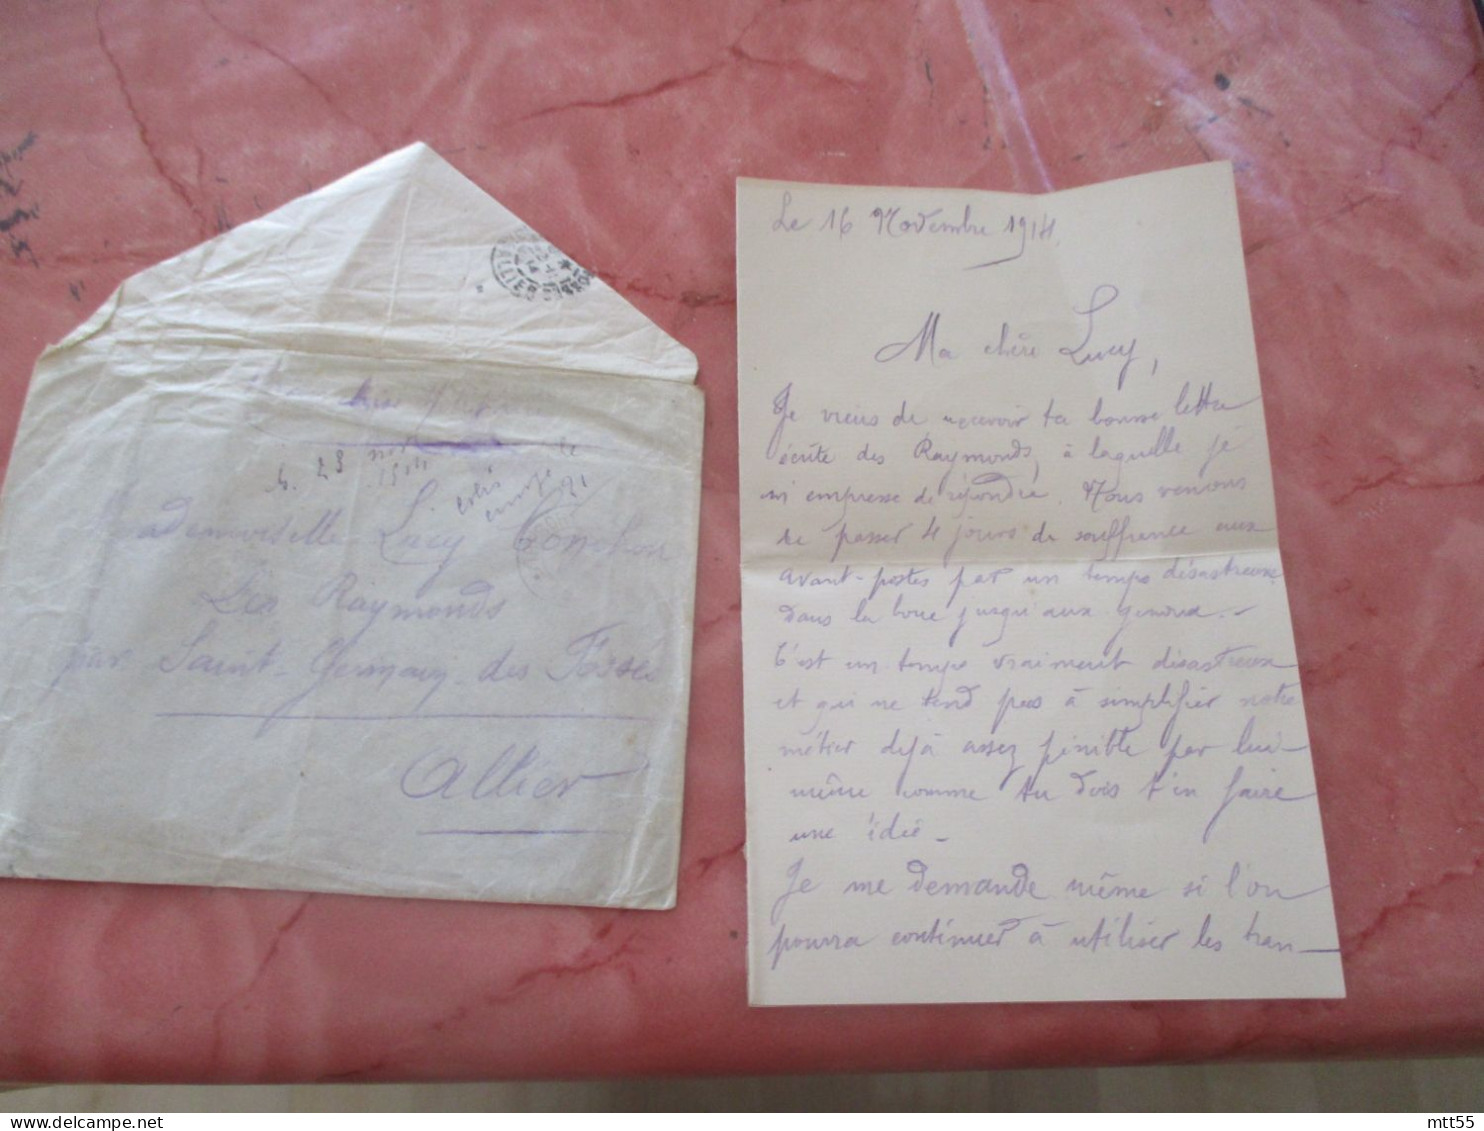 ALLIER
23 nov
1914
colis
envoyé le
21
Mademoiselle Lucy
Les Raymonds
par Saint-Germain-des Fossés
Allier
Le 16 Novembre 1914.
Ma chère Lucy,
Je viens de recevoir ta bonne lettre
écrite des Raymonds, à laquelle je
m'empresse de répondre. Nous venons
de passer 4 jours de souffrance aux
avant-postes par un temps désastreux
dans la boue jusqu'aux genoux. -
C'est un temps vraiment désastreux
et qui ne tend pas à simplifier notre
métier déjà assez pénible par lui-
même comme tu dois t'en faire
une idée -
Je me demande même si l'on
pourra continuer à utiliser les tran-
mtt55